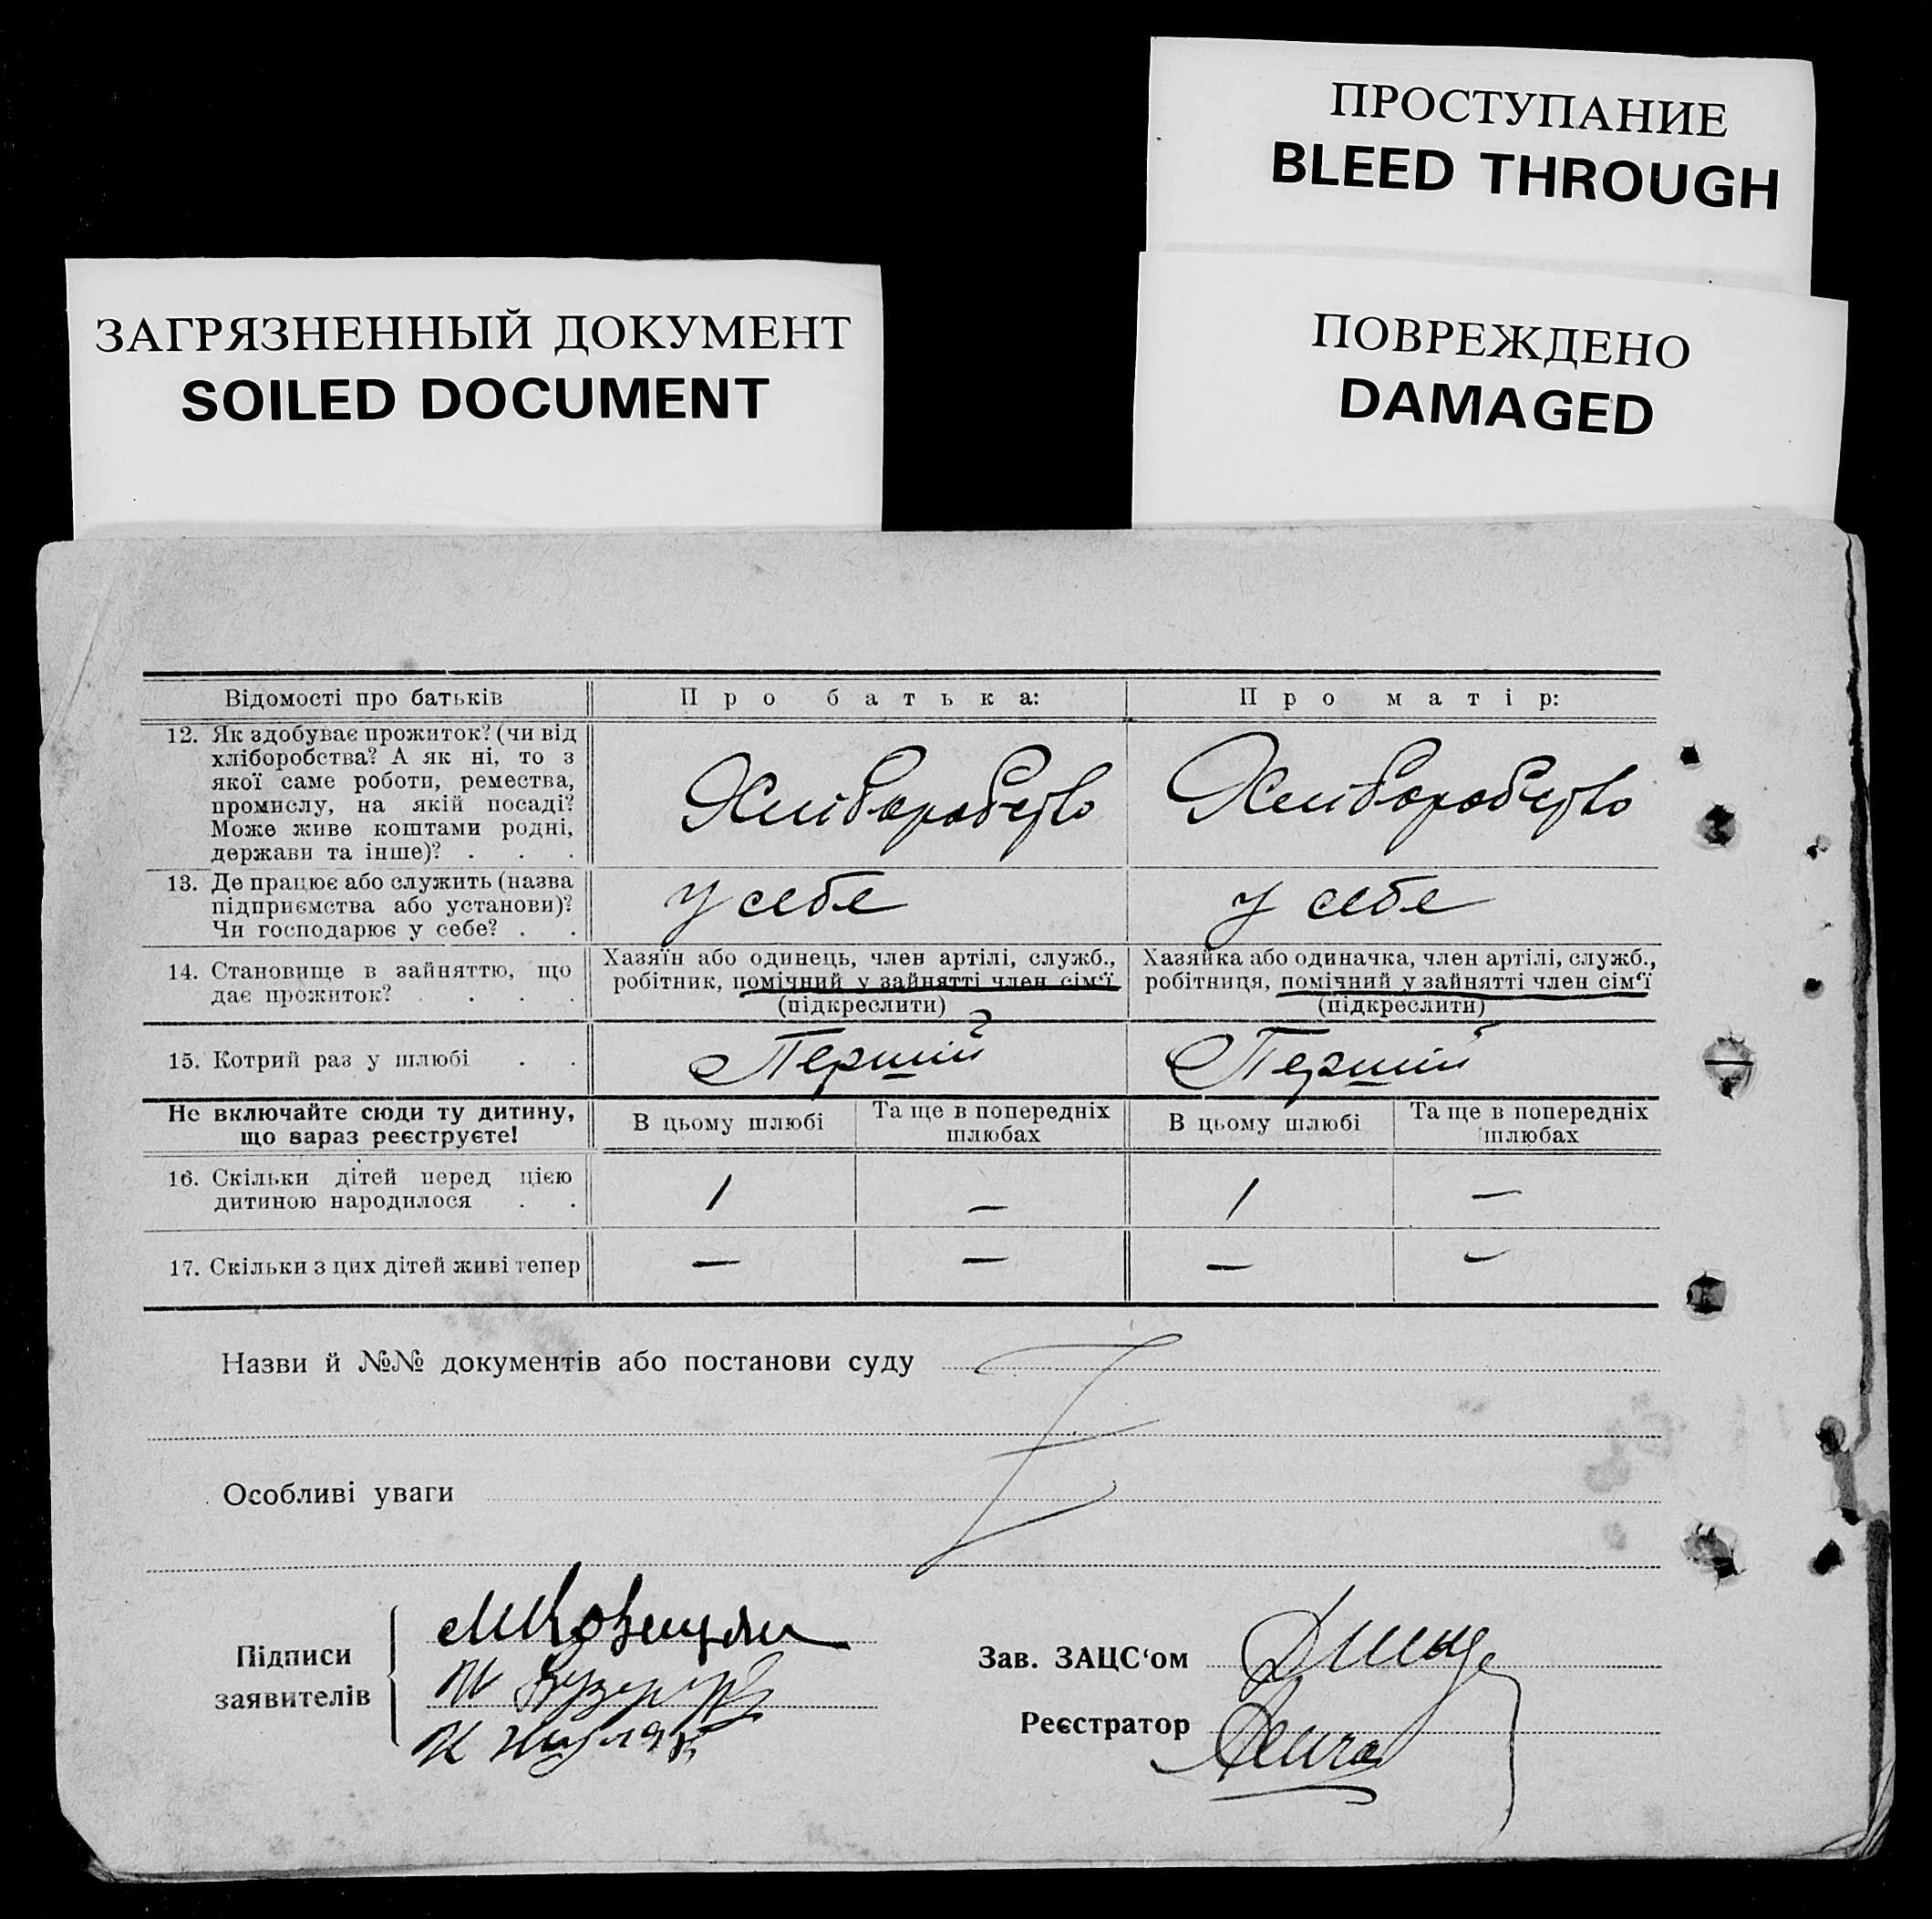 ПРОСТУПАНИЕ
BLEED THROUGH
ЗАГРЯЗНЕННЫЙ ДОКУМЕНТ
SOILED DOCUMENT
ПОВРЕЖДЕНО
DAMAGED
Відомості про батьків
Про батька:
Про матір:
12. Як здобуває прожиток? (чи від
хліборобства? А як ні, то з
якої саме роботи, ремества,
промислу, на якій посаді?
Може живе коштами родні,
держави та інше)? . . .
Хліборобство
Хліборобство
13. Де працює або служить (назва
підприємства або установи)?
Чи господарює у себе? . .
у себе
у себе
14. Становище в зайняттю, що
дає прожиток? . . .
Хазяїн або одинець, член артілі, служб.,
робітник, помічний у зайнятті член сім‘ї
(підкреслити)
Хазяйка або одиначка, член артілі, служб.,
робітниця, помічний у зайнятті член сім‘ї
(підкреслити)
15. Котрий раз у шлюбі . .
Перший
Перший
Не включайте сюди ту дитину,
що зараз реєструєте!
В цьому шлюбі
Та ще в попередніх
шлюбах
В цьому шлюбі
Та ще в попередніх
шлюбах
16. Скільки дітей перед цією
дитиною народилося . .
1
—
1
—
17. Скільки з цих дітей живі тепер
—
—
—
—
Назви й №№ документів або постанови суду
Особливі уваги
Підписи
заявителів
Зав. ЗАЦС‘ом
Реєстратор